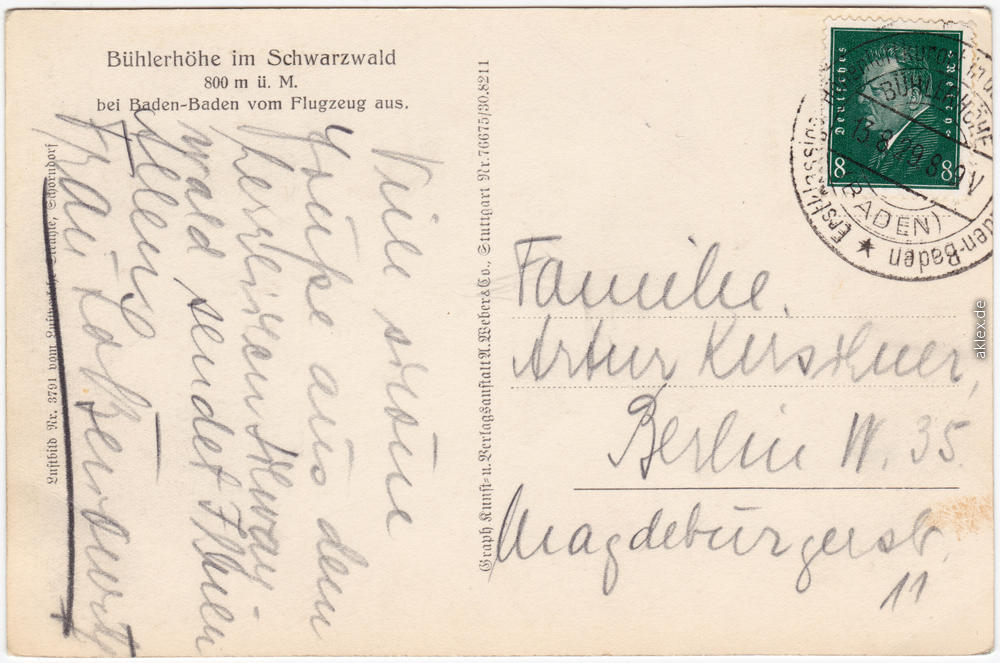 Bühlerhöhe im Schwarzwald
800 m ü. M.
bei Baden-Baden vom Flugzeug aus.
Viele schöne
Grüße aus dem
herrlichen Schwarz-
wald sendet Ihnen
Allen
Frau
Luftbild Nr. 3791 vom Schorndorf
Graph Kunst- u. Verlagsanstalt A. Weber & Co., Stuttgart Nr. 76675/30.8211
Deutsches Reich
8 8
BÜHLERHÖHE
13.8.29.8-9V
(BADEN)
Baden-Baden
Familie
Artur Kirschner,
Berlin W. 35.
Magdeburgerstr.
11
aklex.de